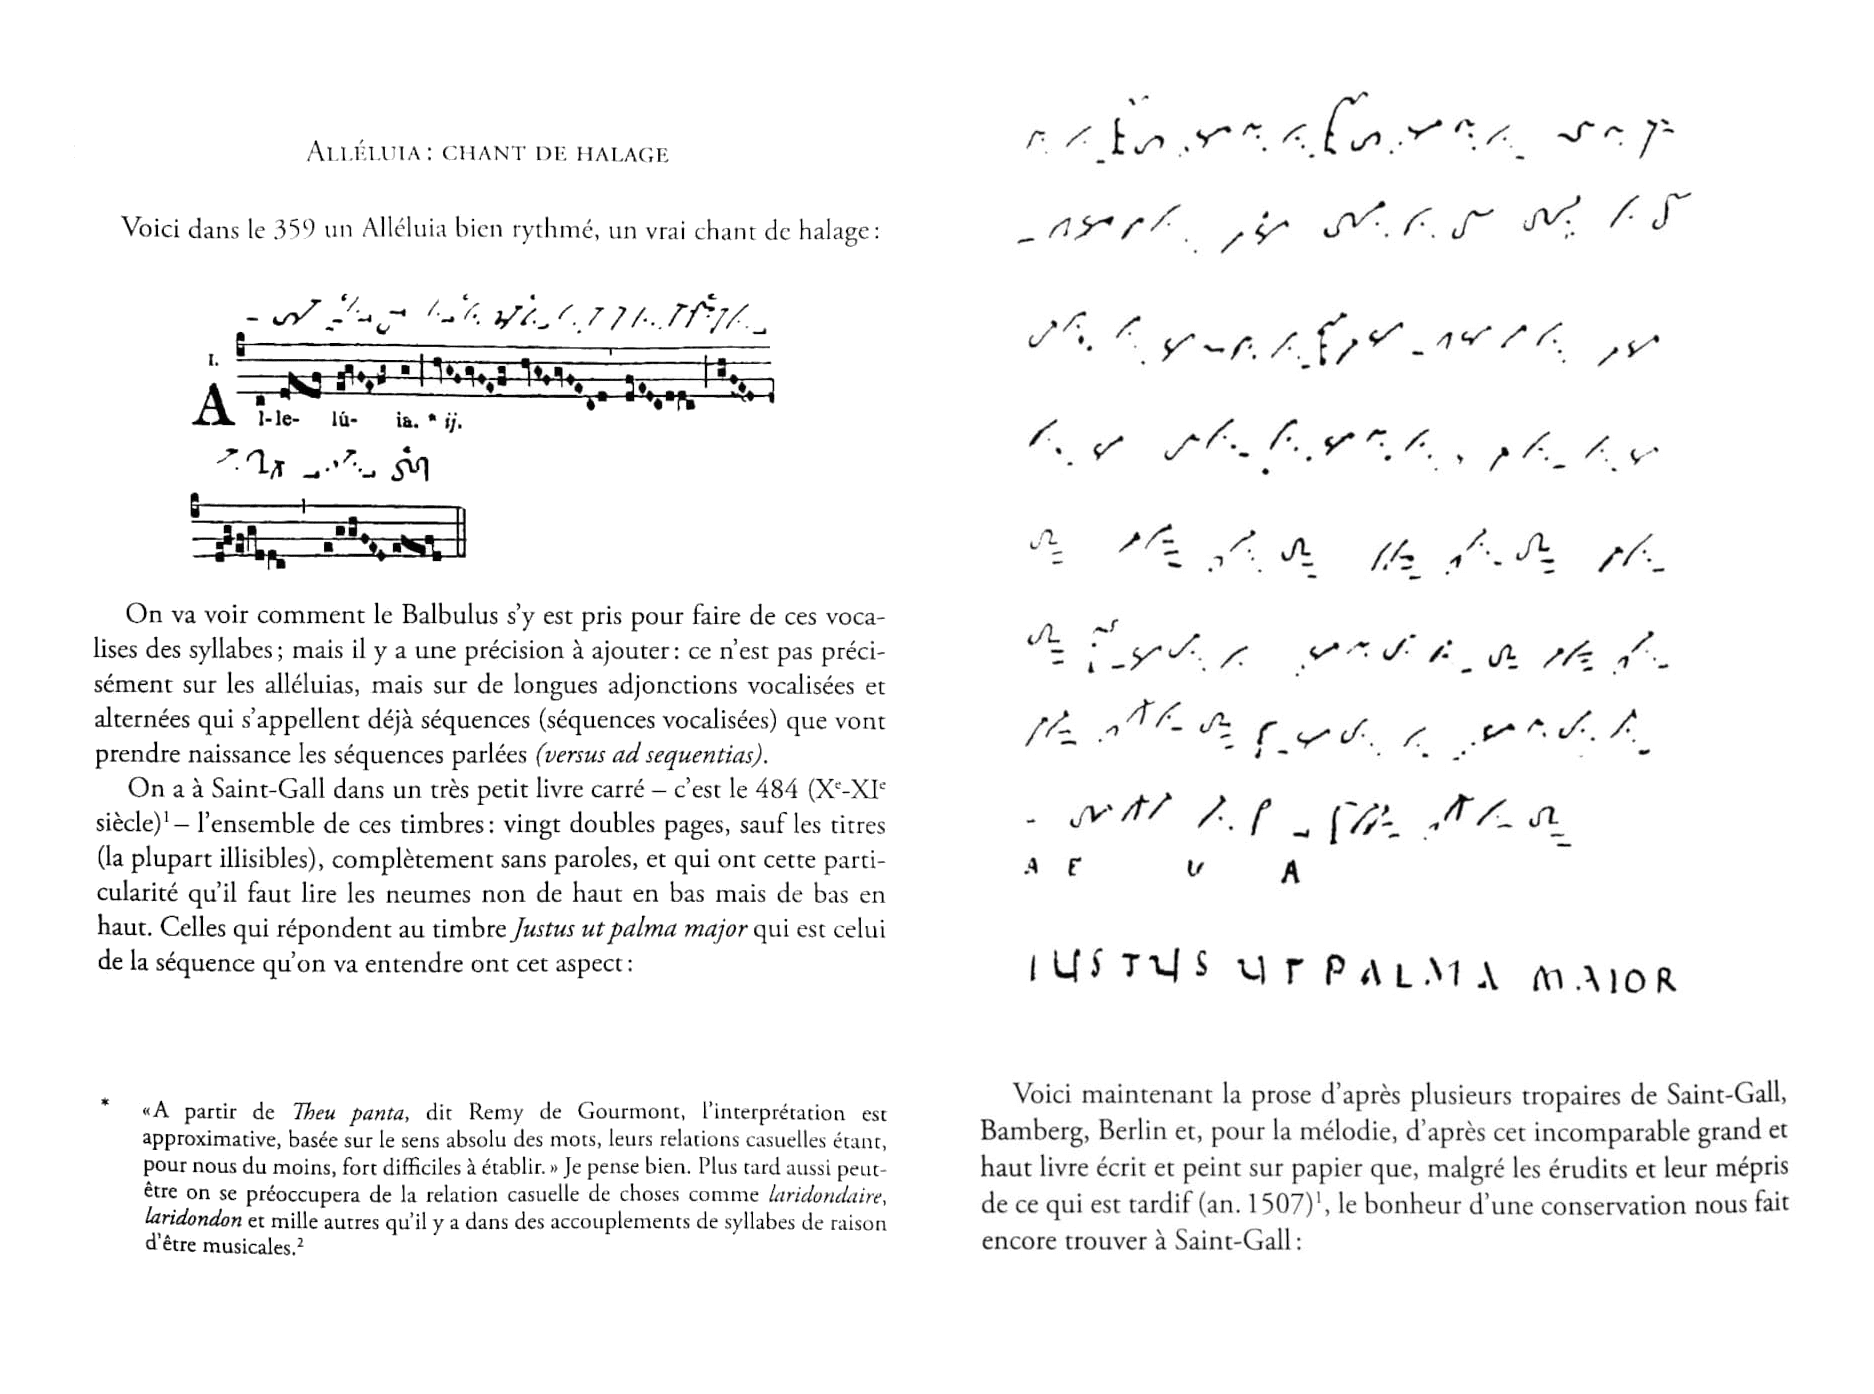 ALLÉLUIA : CHANT DE HALAGE
Voici dans le 359 un Alléluia bien rythmé, un vrai chant de halage :
I.
A l-le- lú- ia. * ij.
On va voir comment le Balbulus s’y est pris pour faire de ces voca-
lises des syllabes ; mais il y a une précision à ajouter : ce n’est pas préci-
sément sur les alléluias, mais sur de longues adjonctions vocalisées et
alternées qui s’appellent déjà séquences (séquences vocalisées) que vont
prendre naissance les séquences parlées (versus ad sequentias).
On a à Saint-Gall dans un très petit livre carré – c’est le 484 (Xᵉ-XIᵉ
siècle)¹ – l’ensemble de ces timbres : vingt doubles pages, sauf les titres
(la plupart illisibles), complètement sans paroles, et qui ont cette parti-
cularité qu’il faut lire les neumes non de haut en bas mais de bas en
haut. Celles qui répondent au timbre Justus ut palma major qui est celui
de la séquence qu’on va entendre ont cet aspect :
* « A partir de Theu panta, dit Remy de Gourmont, l’interprétation est
approximative, basée sur le sens absolu des mots, leurs relations casuelles étant,
pour nous du moins, fort difficiles à établir. » Je pense bien. Plus tard aussi peut-
être on se préoccupera de la relation casuelle de choses comme laridondaire,
laridondon et mille autres qu’il y a dans des accouplements de syllabes de raison
d’être musicales.²
A E U A
IUSTUS UT PALMA MAIOR
Voici maintenant la prose d’après plusieurs tropaires de Saint-Gall,
Bamberg, Berlin et, pour la mélodie, d’après cet incomparable grand et
haut livre écrit et peint sur papier que, malgré les érudits et leur mépris
de ce qui est tardif (an. 1507)¹, le bonheur d’une conservation nous fait
encore trouver à Saint-Gall :